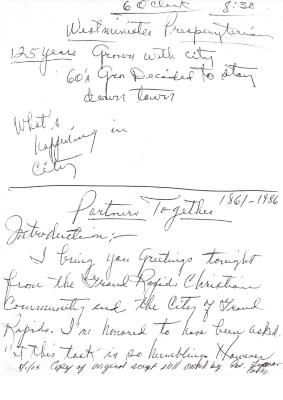 6 O'Clock 8:30
Westminister Prespeyterian
125 years Grown with city
'60's Decided to stay
down town
What's
happening in
City
Partners Together 1861-1986
Introduction:-
I bring you Greetings tonight
from the Grand Rapids Christian
Community and the City of Grand
Rapids. I'm honored to have been asked.
this task is so humbling. However
Copy of original script still owned by Rev.